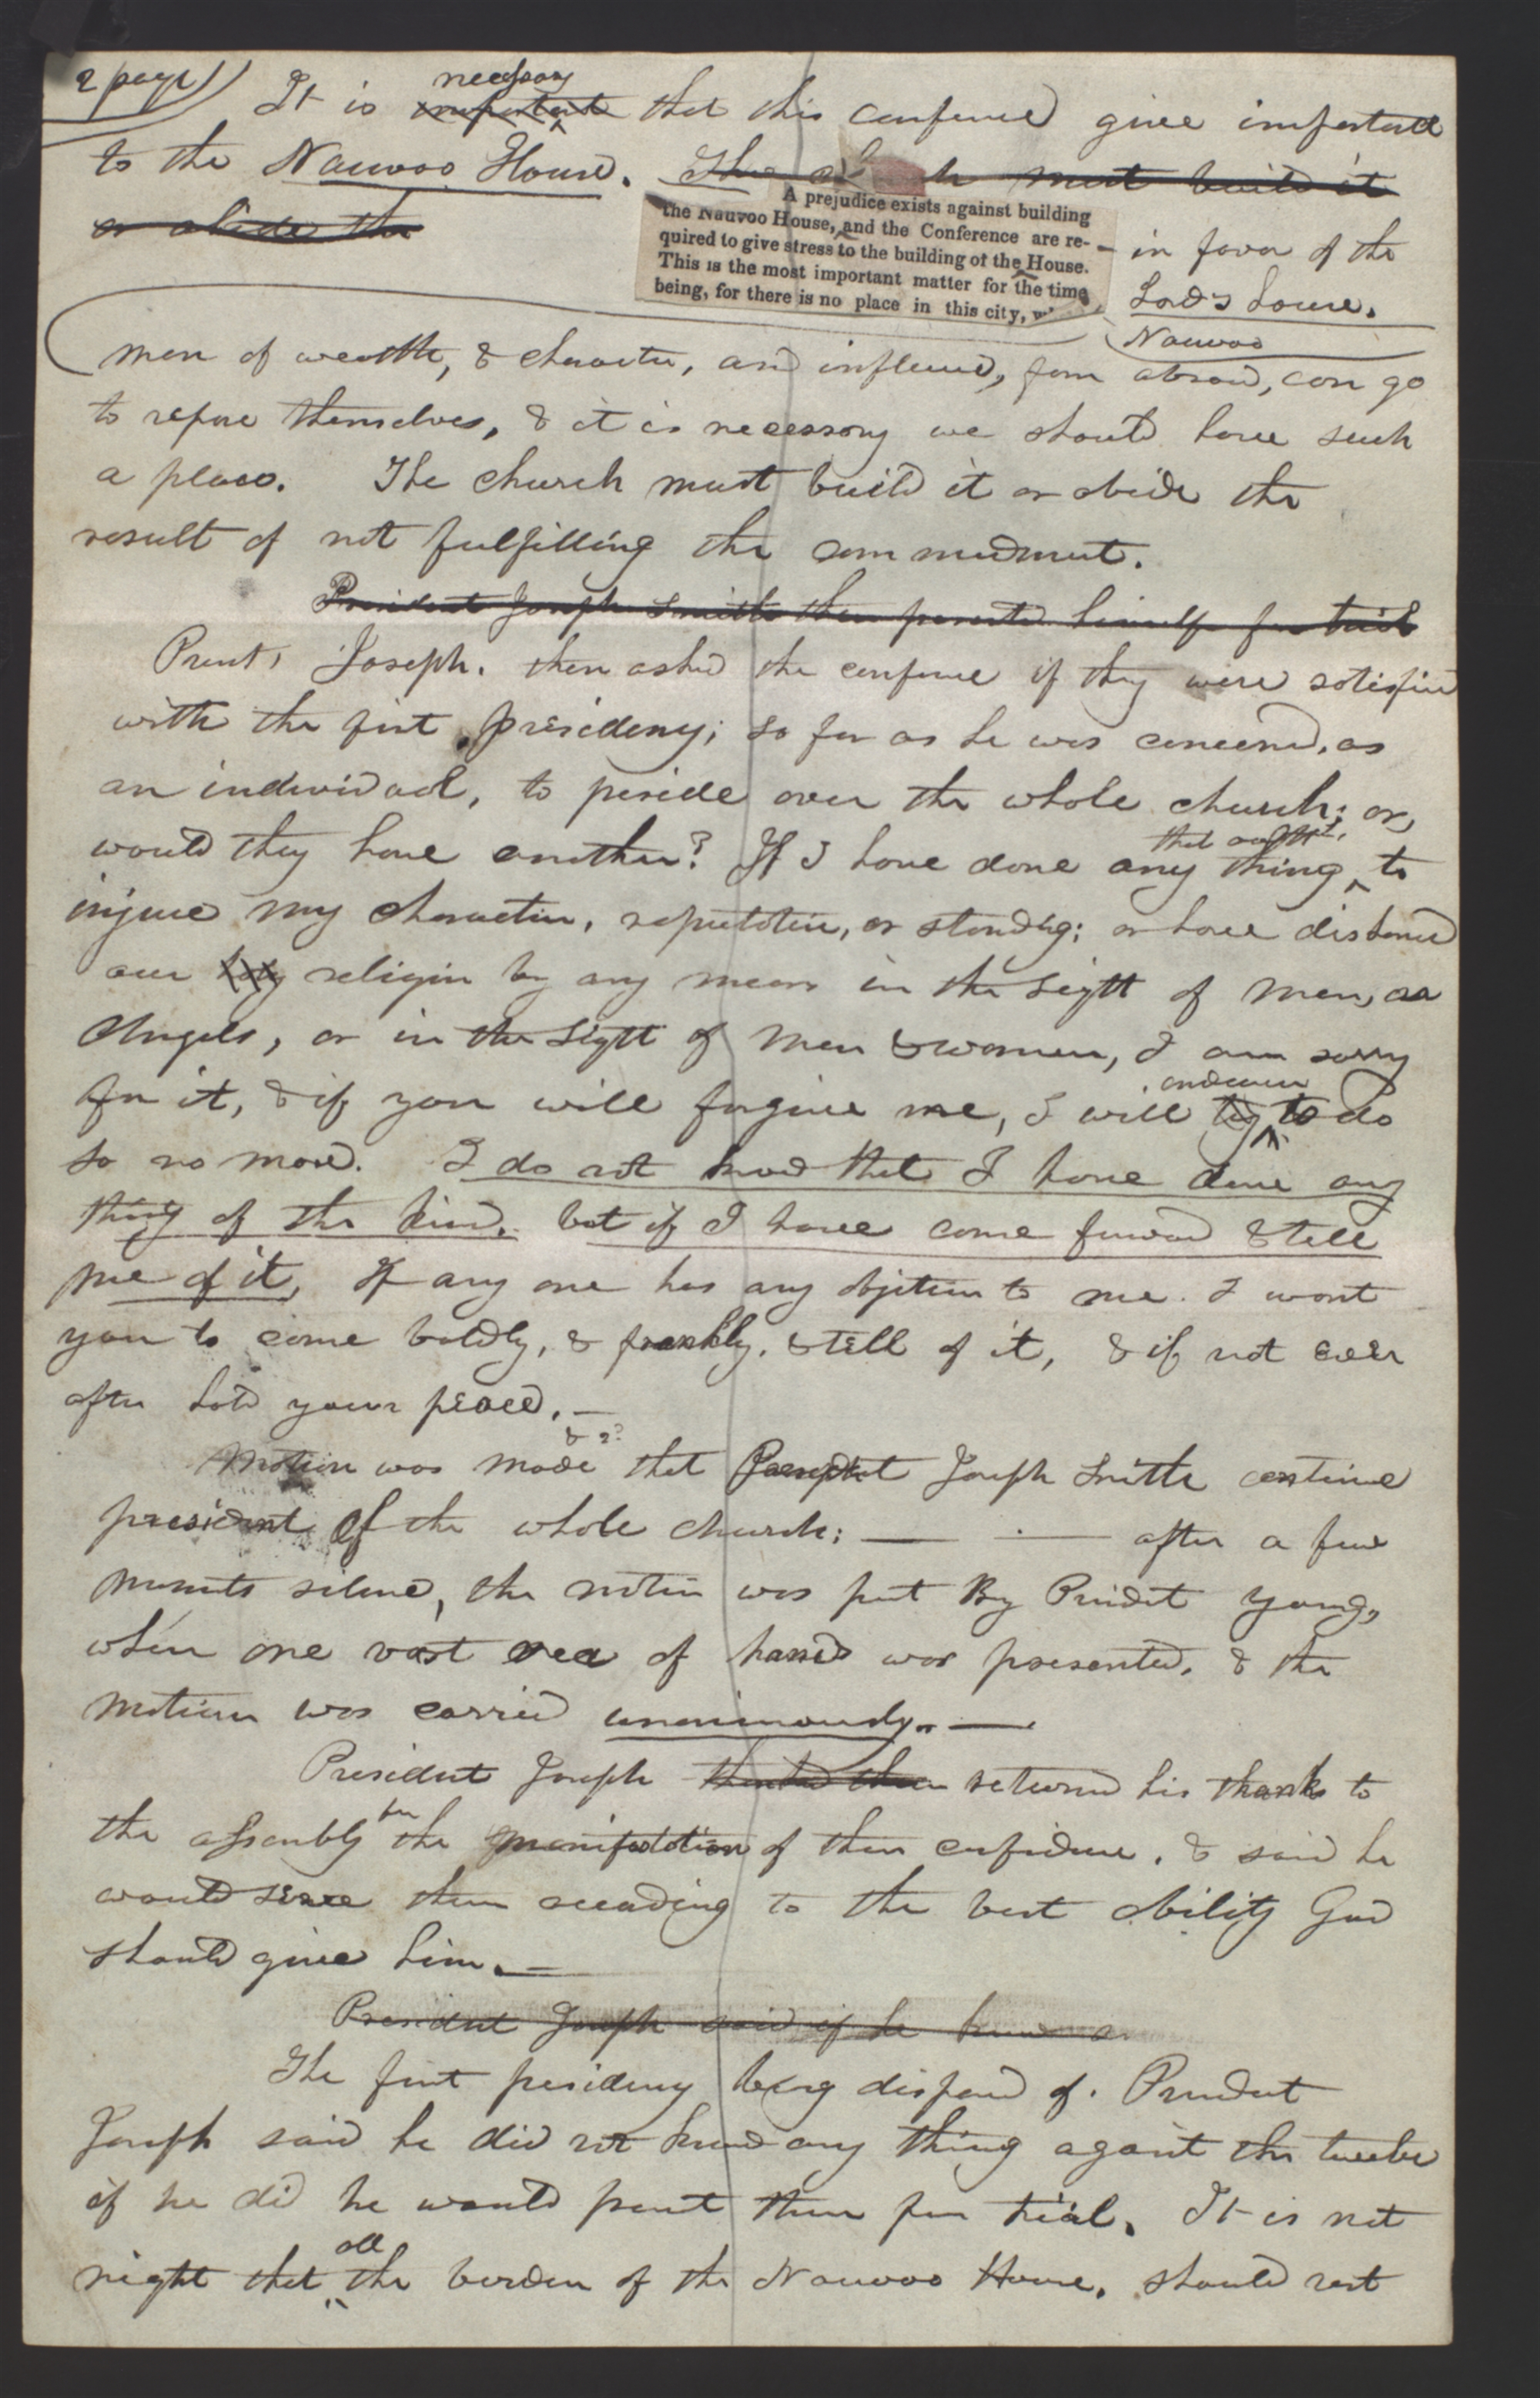 2 page)
necessary
It is important that this conferenc give importance
to the Nauvoo House. The church must build it
or abide the
A prejudice exists against building
the Nauvoo House, and the Conference are re-
quired to give stress to the building of the House.
This is the most important matter for the time
being, for there is no place in this city, wh
- in favor of the
Lord's house.
Nauvoo
men of wealth, & character, and influence, from abroad, can go
to repose themselves, & it is necessary we should have such
a place. The church must build it or abide the
result of not fulfilling the commndment.
President Joseph Smith then presented himself for trial
Presnt, Joseph. then asked the confernce if they were satisfied
with the first presidency; so far as he was concerned, as
an individual, to preside over the whole church; or,
that ought,
would they have another? If I have done any thing to
injure my character, reputation, or standing; or have dishonord
our holy religion by any means in the sight of men, or
Angels, or in the sight of men & women, I am sorry
endeavor
for it, & if you will forgive me, I will try to do
so no more. I do not know that I have done any
thing of the kind. but if I have come forward & tell
me of it, If any one has any objection to me. I want
you to come boldly, & frankly. & tell of it, & if not ever
after hold your peace. —
& 2d
Motion was made that President Joseph Smith continue
president of the whole church; — — after a few
minuts silence, the motion was put By Presidnt Young,
when one vast sea of hands was presented, & the
motion was carried unanimously. —
President Joseph thanked them returned his thanks to
for
the assembly the manifestation of their confidence. & said he
would serve them according to the best ability God
should give him. —
President Joseph said if he knew a
The first presidency being disposed of. President
Joseph said he did not know any thing against the twelve
if he did he would present them for trial. It is not
all
right that the burden of the Nauvoo House. should rest